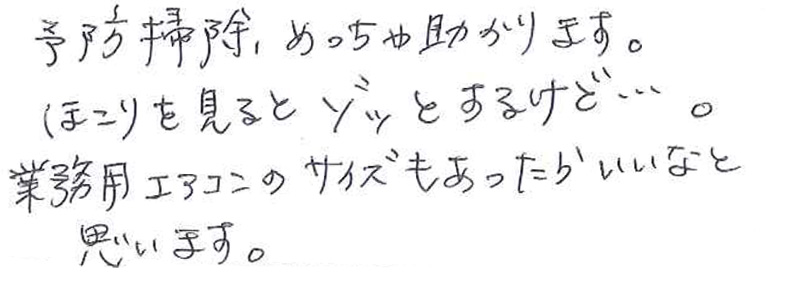 予防掃除、めっちゃ助かります。
ほこりを見るとゾッとするけど…。
業務用エアコンのサイズもあったらいいなと
思います。